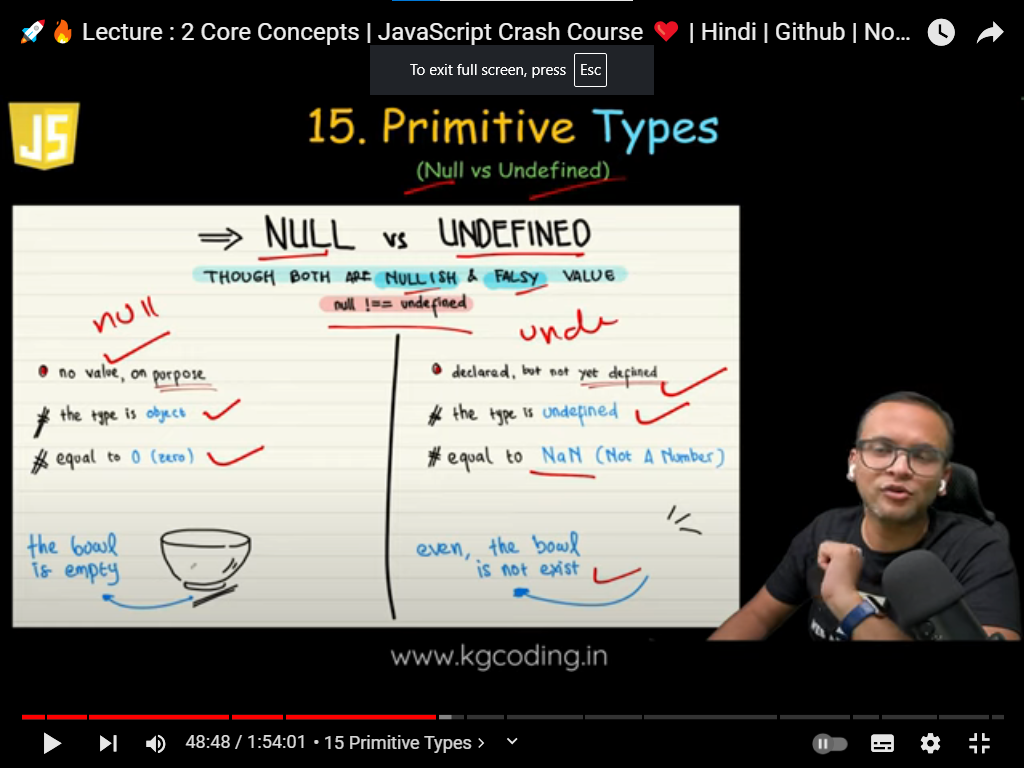 🚀🔥 Lecture : 2 Core Concepts | JavaScript Crash Course ❤️ | Hindi | Github | No...
To exit full screen, press Esc
JS
15. Primitive Types
(Null vs Undefined)
⇒ NULL vs UNDEFINED
THOUGH BOTH ARE NULLISH & FALSY VALUE
null !== undefined
null
unde
no value, on purpose
# the type is object
# equal to 0 (zero)
the bowl
is empty
declared, but not yet defined
# the type is undefined
# equal to NaN (Not A Number)
even, the bowl
is not exist
www.kgcoding.in
48:48 / 1:54:01 • 15 Primitive Types >